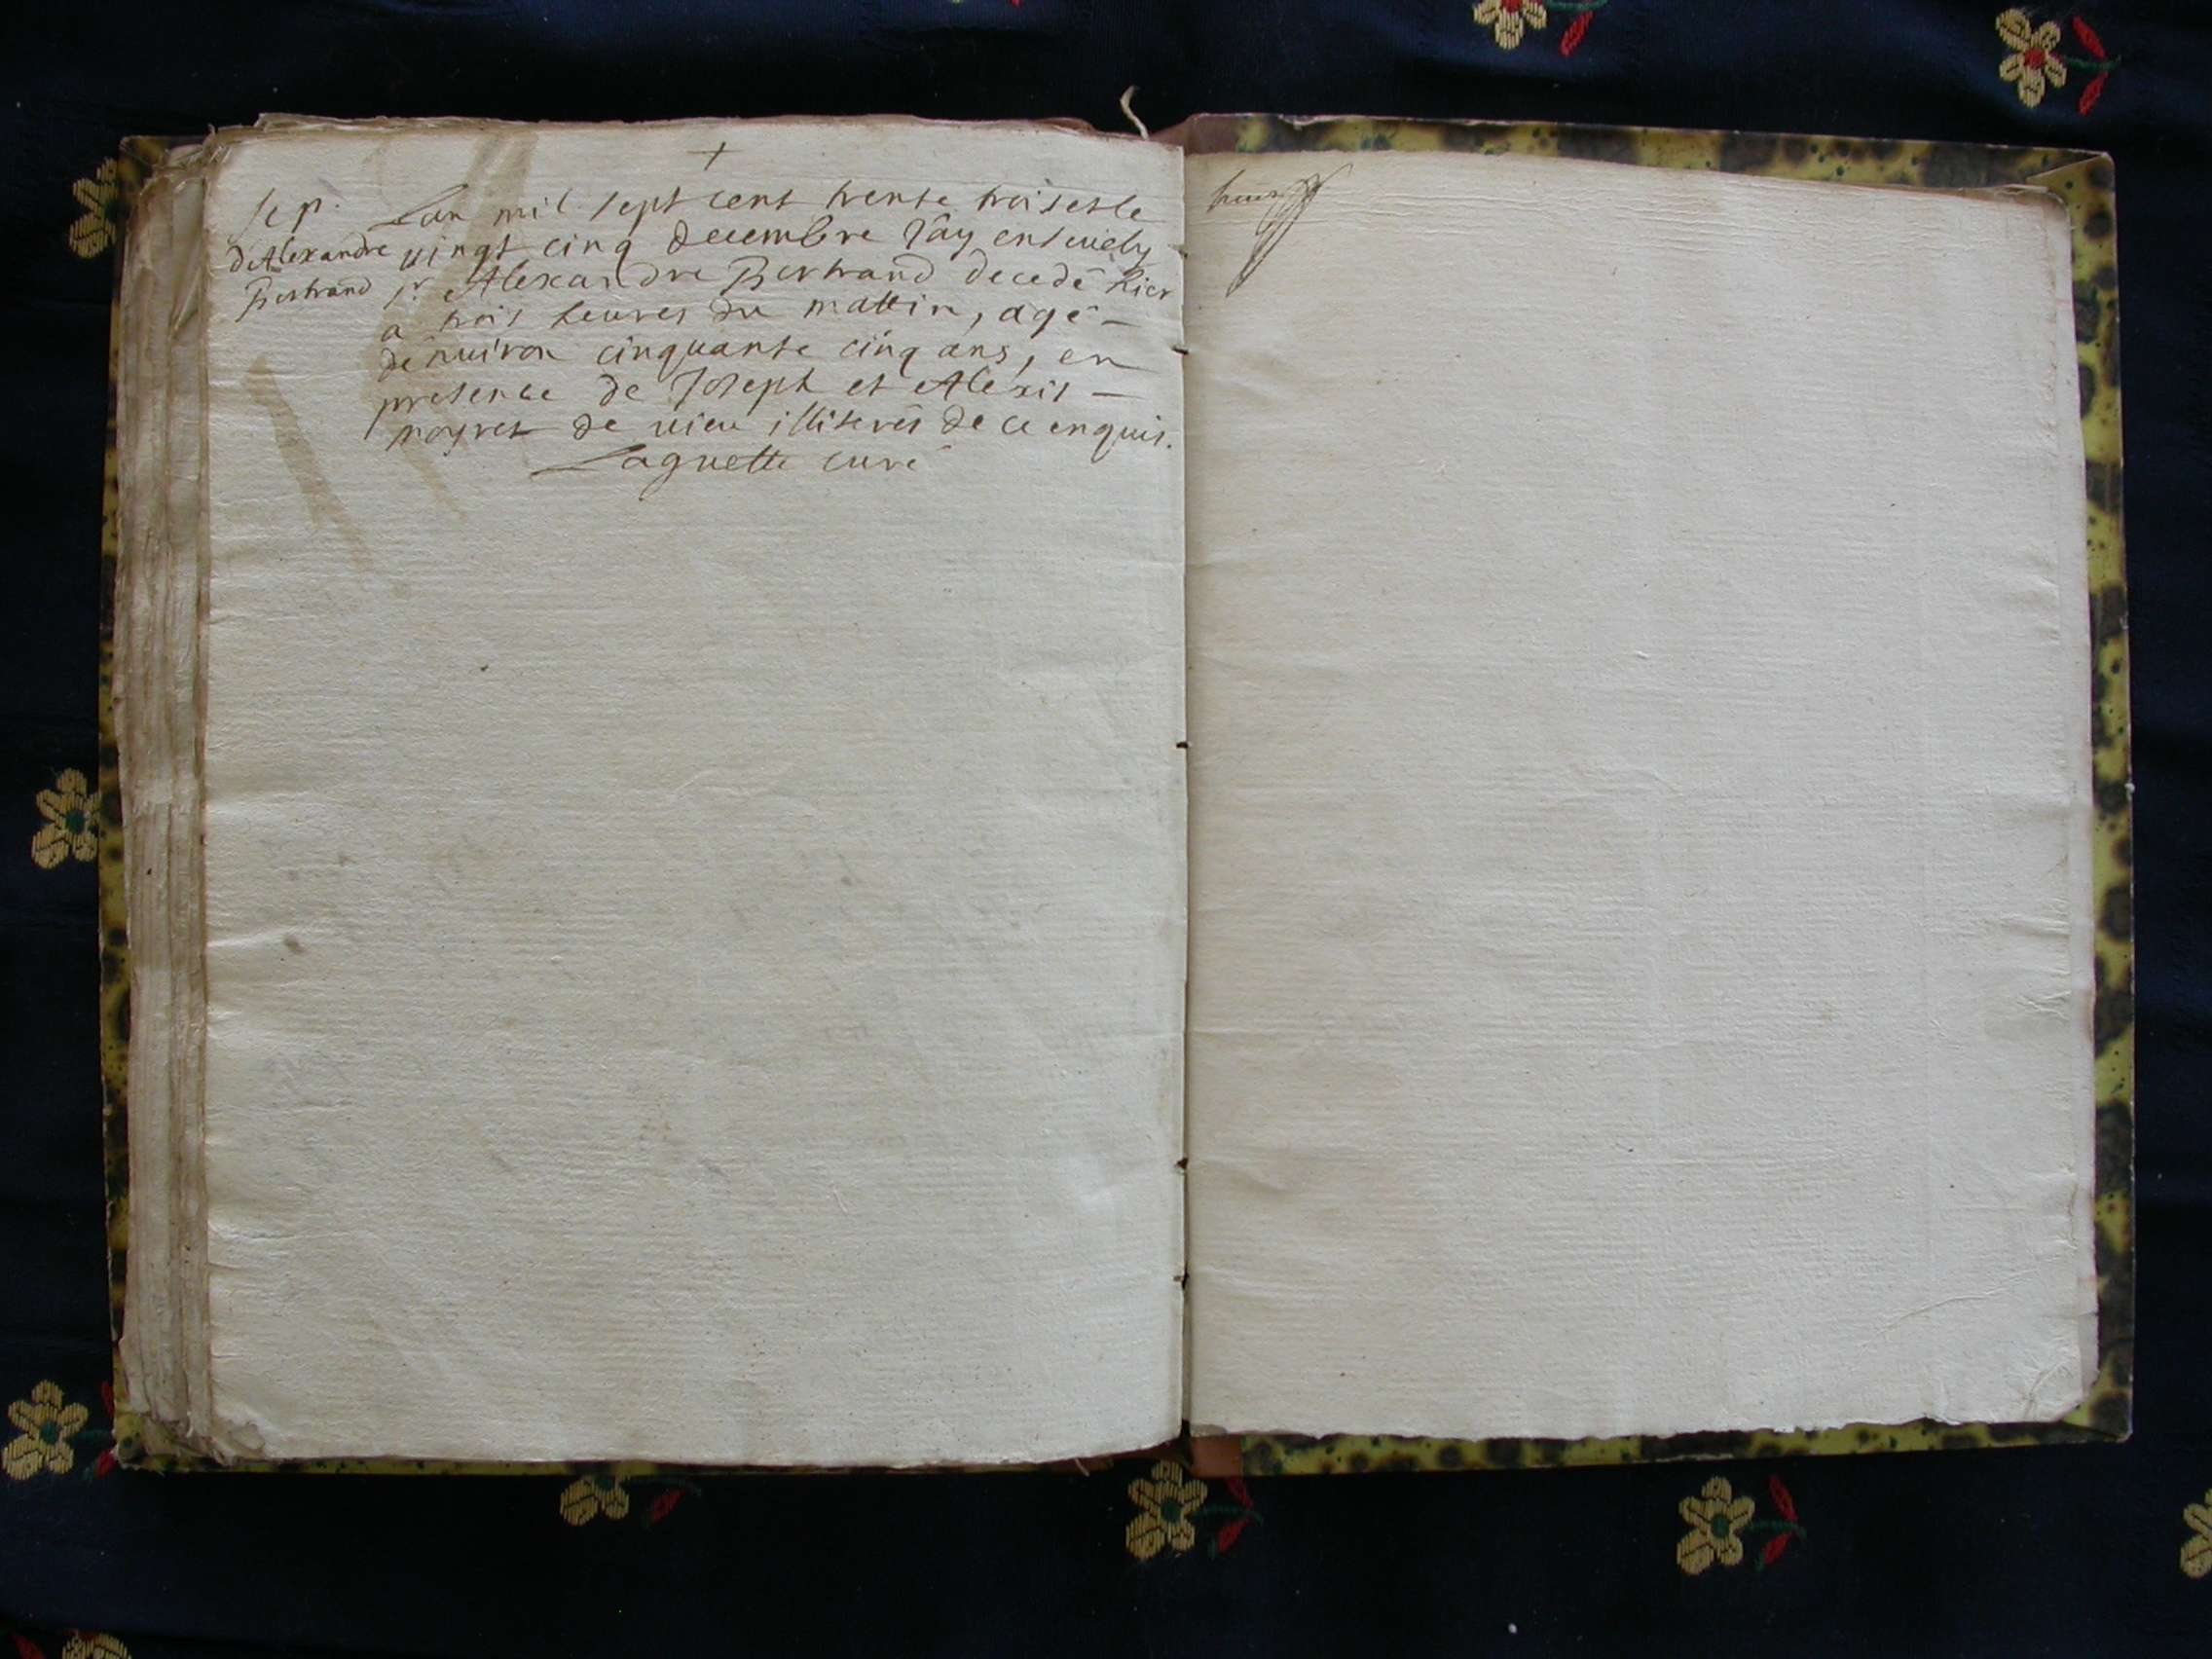 +
Sep.
d'Alexandre
Bertrand
Lan mil sept cent trente trois et le
vingt cinq decembre j'ay enseuely
sr. Alexandre Bertrand decedé hier
a trois heures du mattin, agé
d'enuiron cinquante cinq ans, en
presence de Joseph et Alexis
de uieu illiterés de ce enquis.
Laguette curé